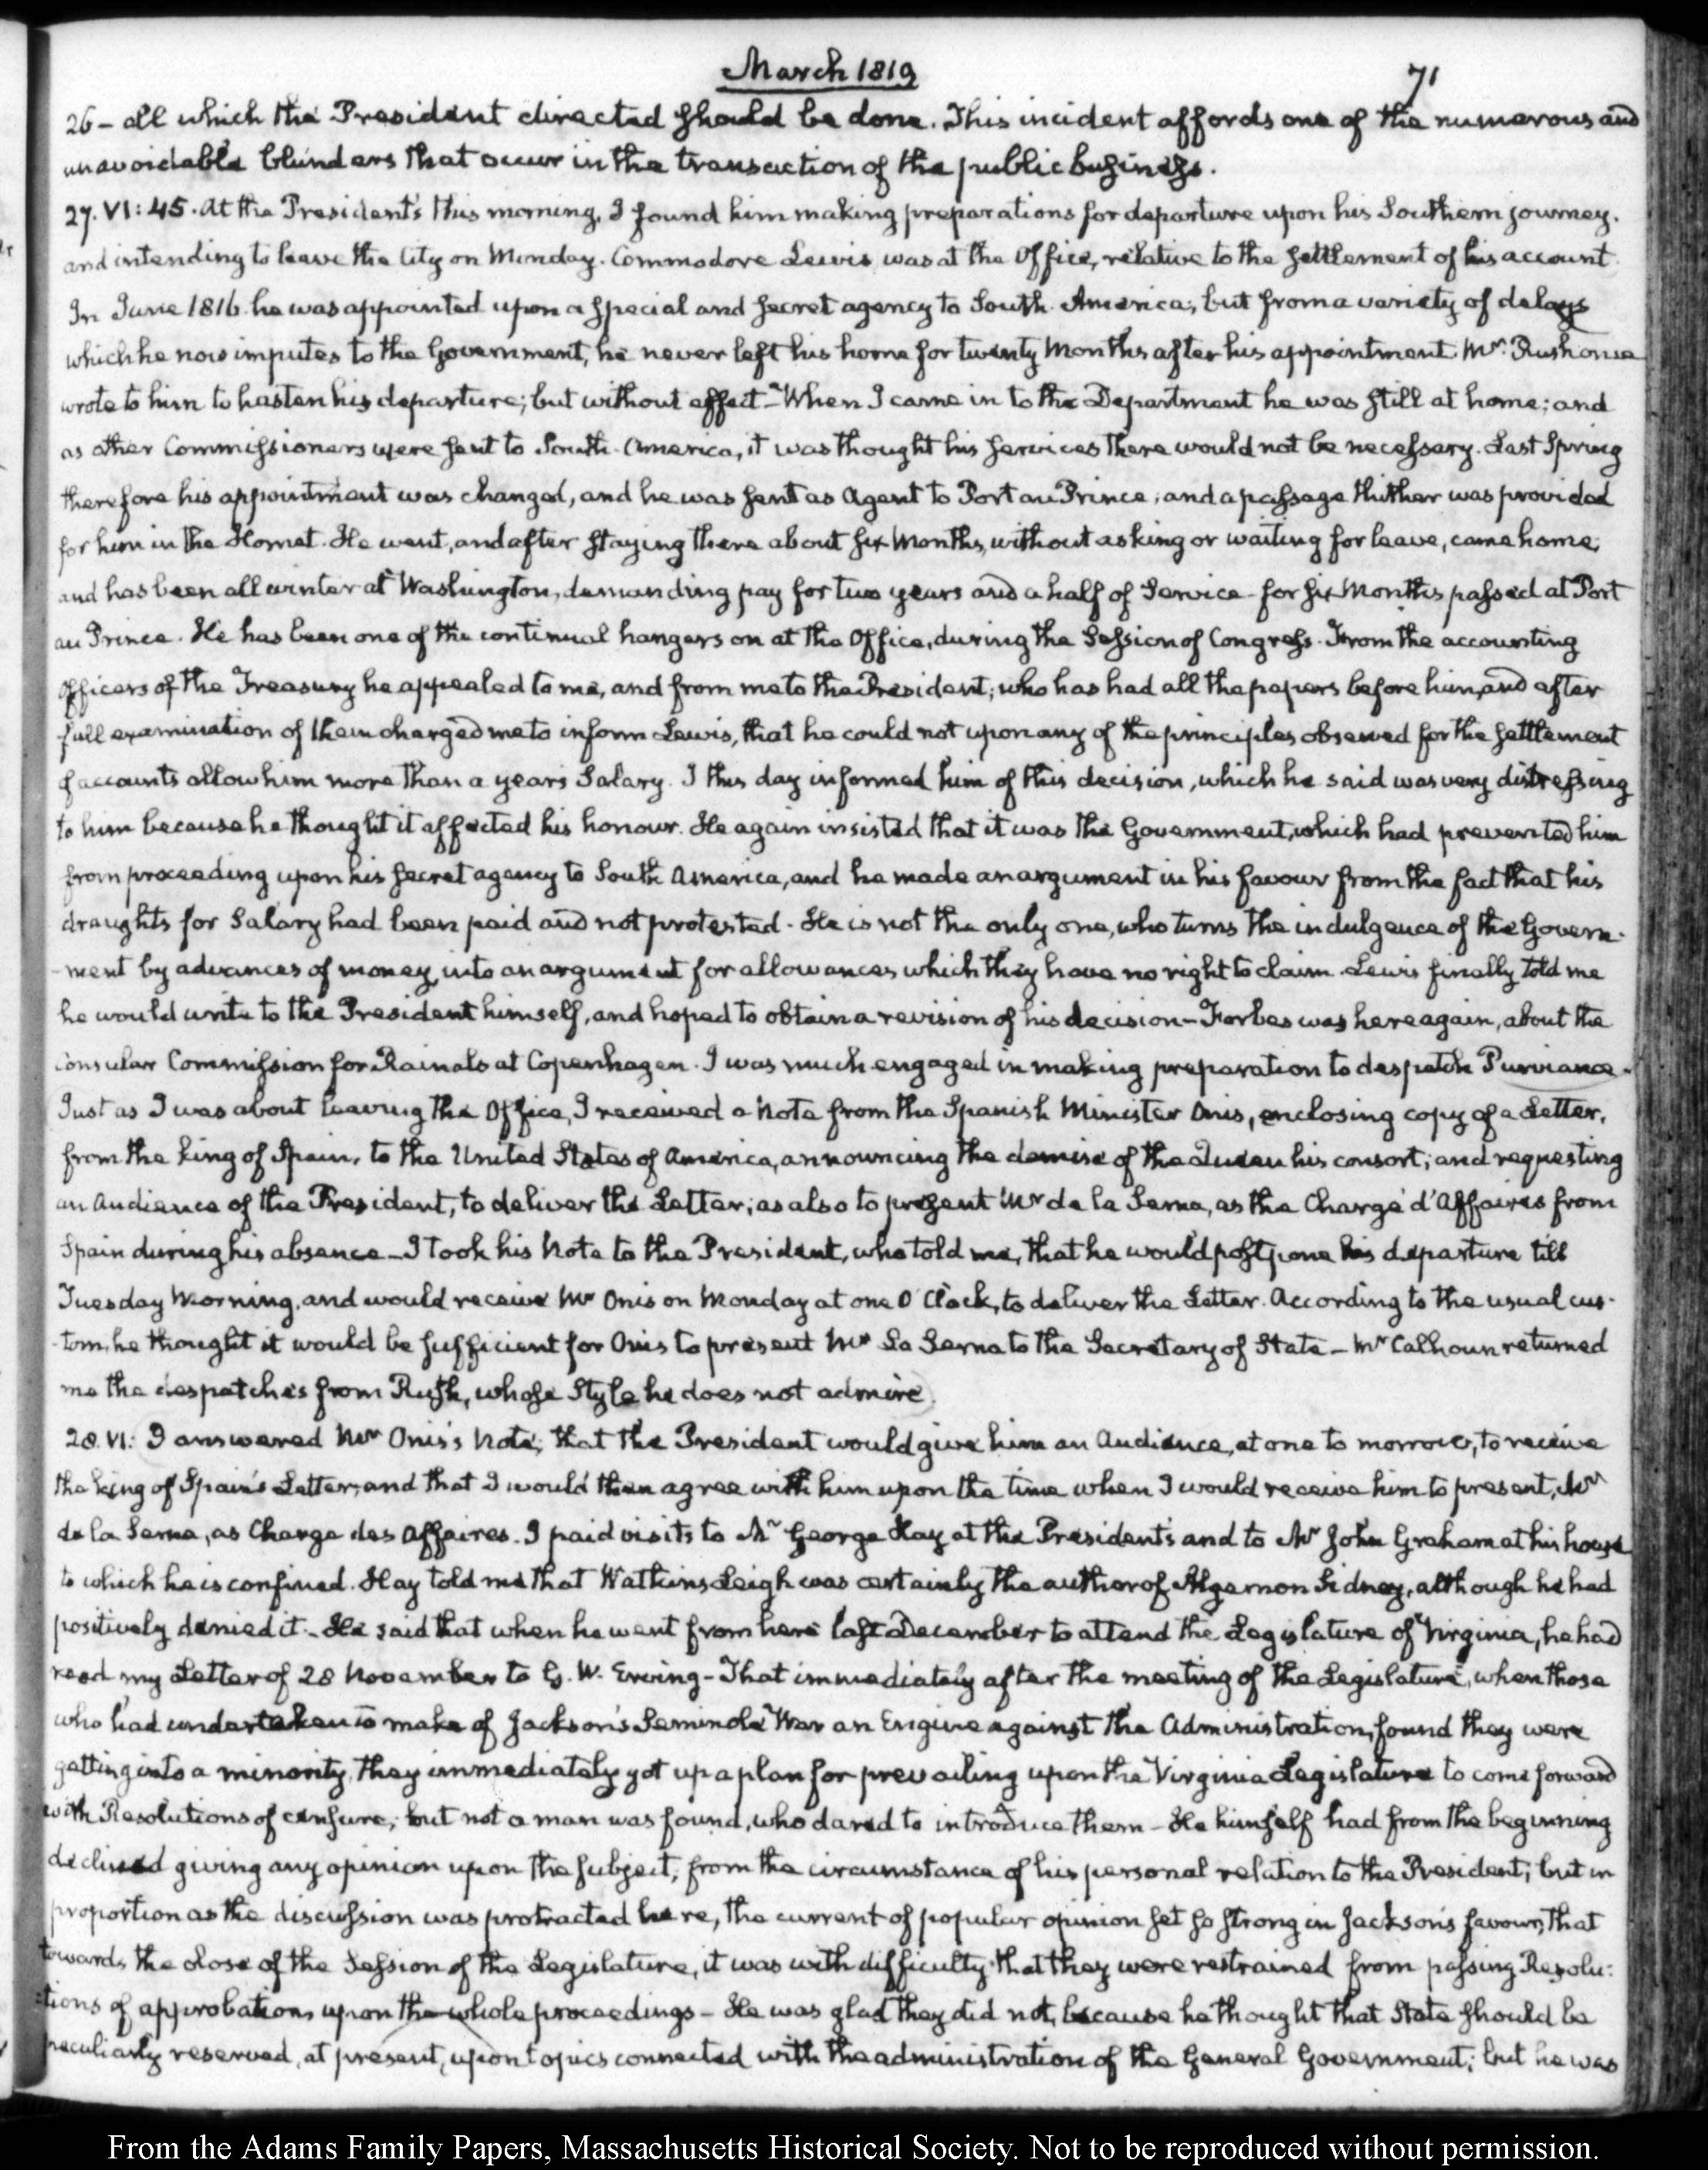 March 1819
71
26 - all which the President directed should be done. This incident affords one of the numerous and
unavoidable blunders that occur in the transaction of the public business.
27. VI: 45. At the President's this morning, I found him making preparations for departure upon his Southern journey.
and intending to leave the City on Monday. Commodore Lewis was at the Office, relative to the settlement of his account
In June 1816. he was appointed upon a special and secret agency to South America; but from a variety of delays
which he now imputes to the Government, he never left his home for twenty Months after his appointment. Mr. Rush once
wrote to him to hasten his departure; but without effect - When I came in to the Department he was still at home; and
as other Commissioners were sent to South America, it was thought his services there would not be necessary. Last Spring
therefore his appointment was changed, and he was sent as Agent to Port au Prince; and a passage thither was provided
for him in the Hornet. He went, and after staying there about six Months, without asking or waiting for leave, came home;
and has been all winter at Washington, demanding pay for two years and a half of Service - for six Months passed at Port
au Prince. He has been one of the continual hangers on at the Office, during the Session of Congress. From the accounting
Officers of the Treasury he appealed to me, and from me to the President; who has had all the papers before him, and after
full examination of them charged me to inform Lewis, that he could not upon any of the principles observed for the settlement
of accounts allow him more than a year's Salary. I this day informed him of this decision, which he said was very distressing
to him because he thought it affected his honour. He again insisted that it was the Government, which had prevented him
from proceeding upon his secret agency to South America, and he made an argument in his favour from the fact that his
draughts for Salary had been paid and not protested - He is not the only one, who turns the indulgence of the Govern-
-ment by advances of money, into an argument for allowances which they have no right to claim. Lewis finally told me
he would write to the President himself, and hoped to obtain a revision of his decision - Forbes was here again, about the
Consular Commission for Rainals at Copenhagen. I was much engaged in making preparation to despatch Purviance.
Just as I was about leaving the Office, I received a Note from the Spanish Minister Onis, enclosing copy of a Letter,
from the king of Spain, to the United States of America, announcing the demise of the Queen his consort; and requesting
an Audience of the President, to deliver the Letter; as also to present Mr de la Serna, as the Chargé d'Affaires from
Spain during his absence - I took his Note to the President, who told me, that he would postpone his departure till
Tuesday Morning, and would receive Mr Onis on Monday at one O'Clock, to deliver the Letter. According to the usual cus-
-tom, he thought it would be sufficient for Onis to present Mr La Serna to the Secretary of State - Mr Calhoun returned
me the despatches from Rush, whose Style he does not admire.
28. VI: I answered Mr Onis's Note; that the President would give him an Audience, at one to morrow, to receive
the king of Spain's Letter; and that I would then agree with him upon the time when I would receive him to present, Mr
de la Serna, as Charge des Affaires. I paid visits to Mr George Hay at the President's and to Mr John Graham at his house
to which he is confined. Hay told me that Watkins Leigh was certainly the author of Algernon Sidney, although he had
positively denied it - He said that when he went from here last December to attend the Legislature of Virginia, he had
read my Letter of 28 November to G. W. Erving - That immediately after the meeting of the Legislature, when those
who had undertaken to make of Jackson's Seminole War an Engine against the Administration, found they were
getting into a minority, they immediately got up a plan for prevailing upon the Virginia Legislature to come forward
with Resolutions of censure; but not a man was found, who dared to introduce them - He himself had from the beginning
declined giving any opinion upon the subject, from the circumstance of his personal relation to the President; but in
proportion as the discussion was protracted here, the current of popular opinion set so strong in Jackson's favour, that
towards the close of the Session of the Legislature, it was with difficulty that they were restrained from passing Resolu:
:tions of approbation, upon the whole proceedings - He was glad they did not, because he thought that State should be
peculiarly reserved, at present, upon topics connected with the administration of the General Government; but he was
From the Adams Family Papers, Massachusetts Historical Society. Not to be reproduced without permission.